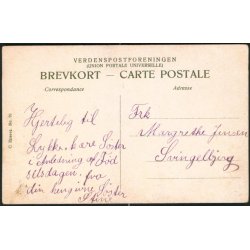 VERDENSPOSTFORENINGEN
(UNION POSTALE UNIVERSELLE)
BREVKORT - CARTE POSTALE
Correspondance
Adresse
Hjertelig til
Lykke kære Søster
i Anledning af Fød
selsdagen. fra
din hengivne Søster
Stine
Frk
Margrethe Jensen
Svingelbjerg